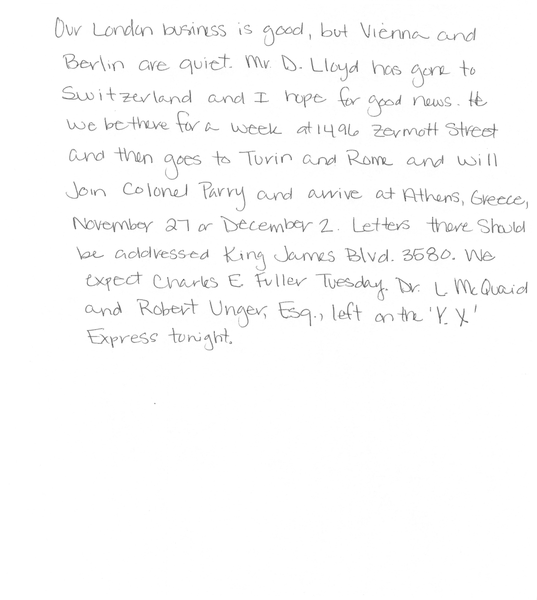 Our London business is good, but Vienna and
Berlin are quiet. Mr. D. Lloyd has gone to
Switzerland and I hope for good news. He
we be there for a week at 1496 Zermott Street
and then goes to Turin and Rome and will
Join Colonel Parry and arrive at Athens, Greece,
November 27 or December 2. Letters there Should
be addressed King James Blvd. 3580. We
expect Charles E Fuller Tuesday. Dr. L McQuaid
and Robert Unger, Esq., left on the 'Y. X'
Express tonight.